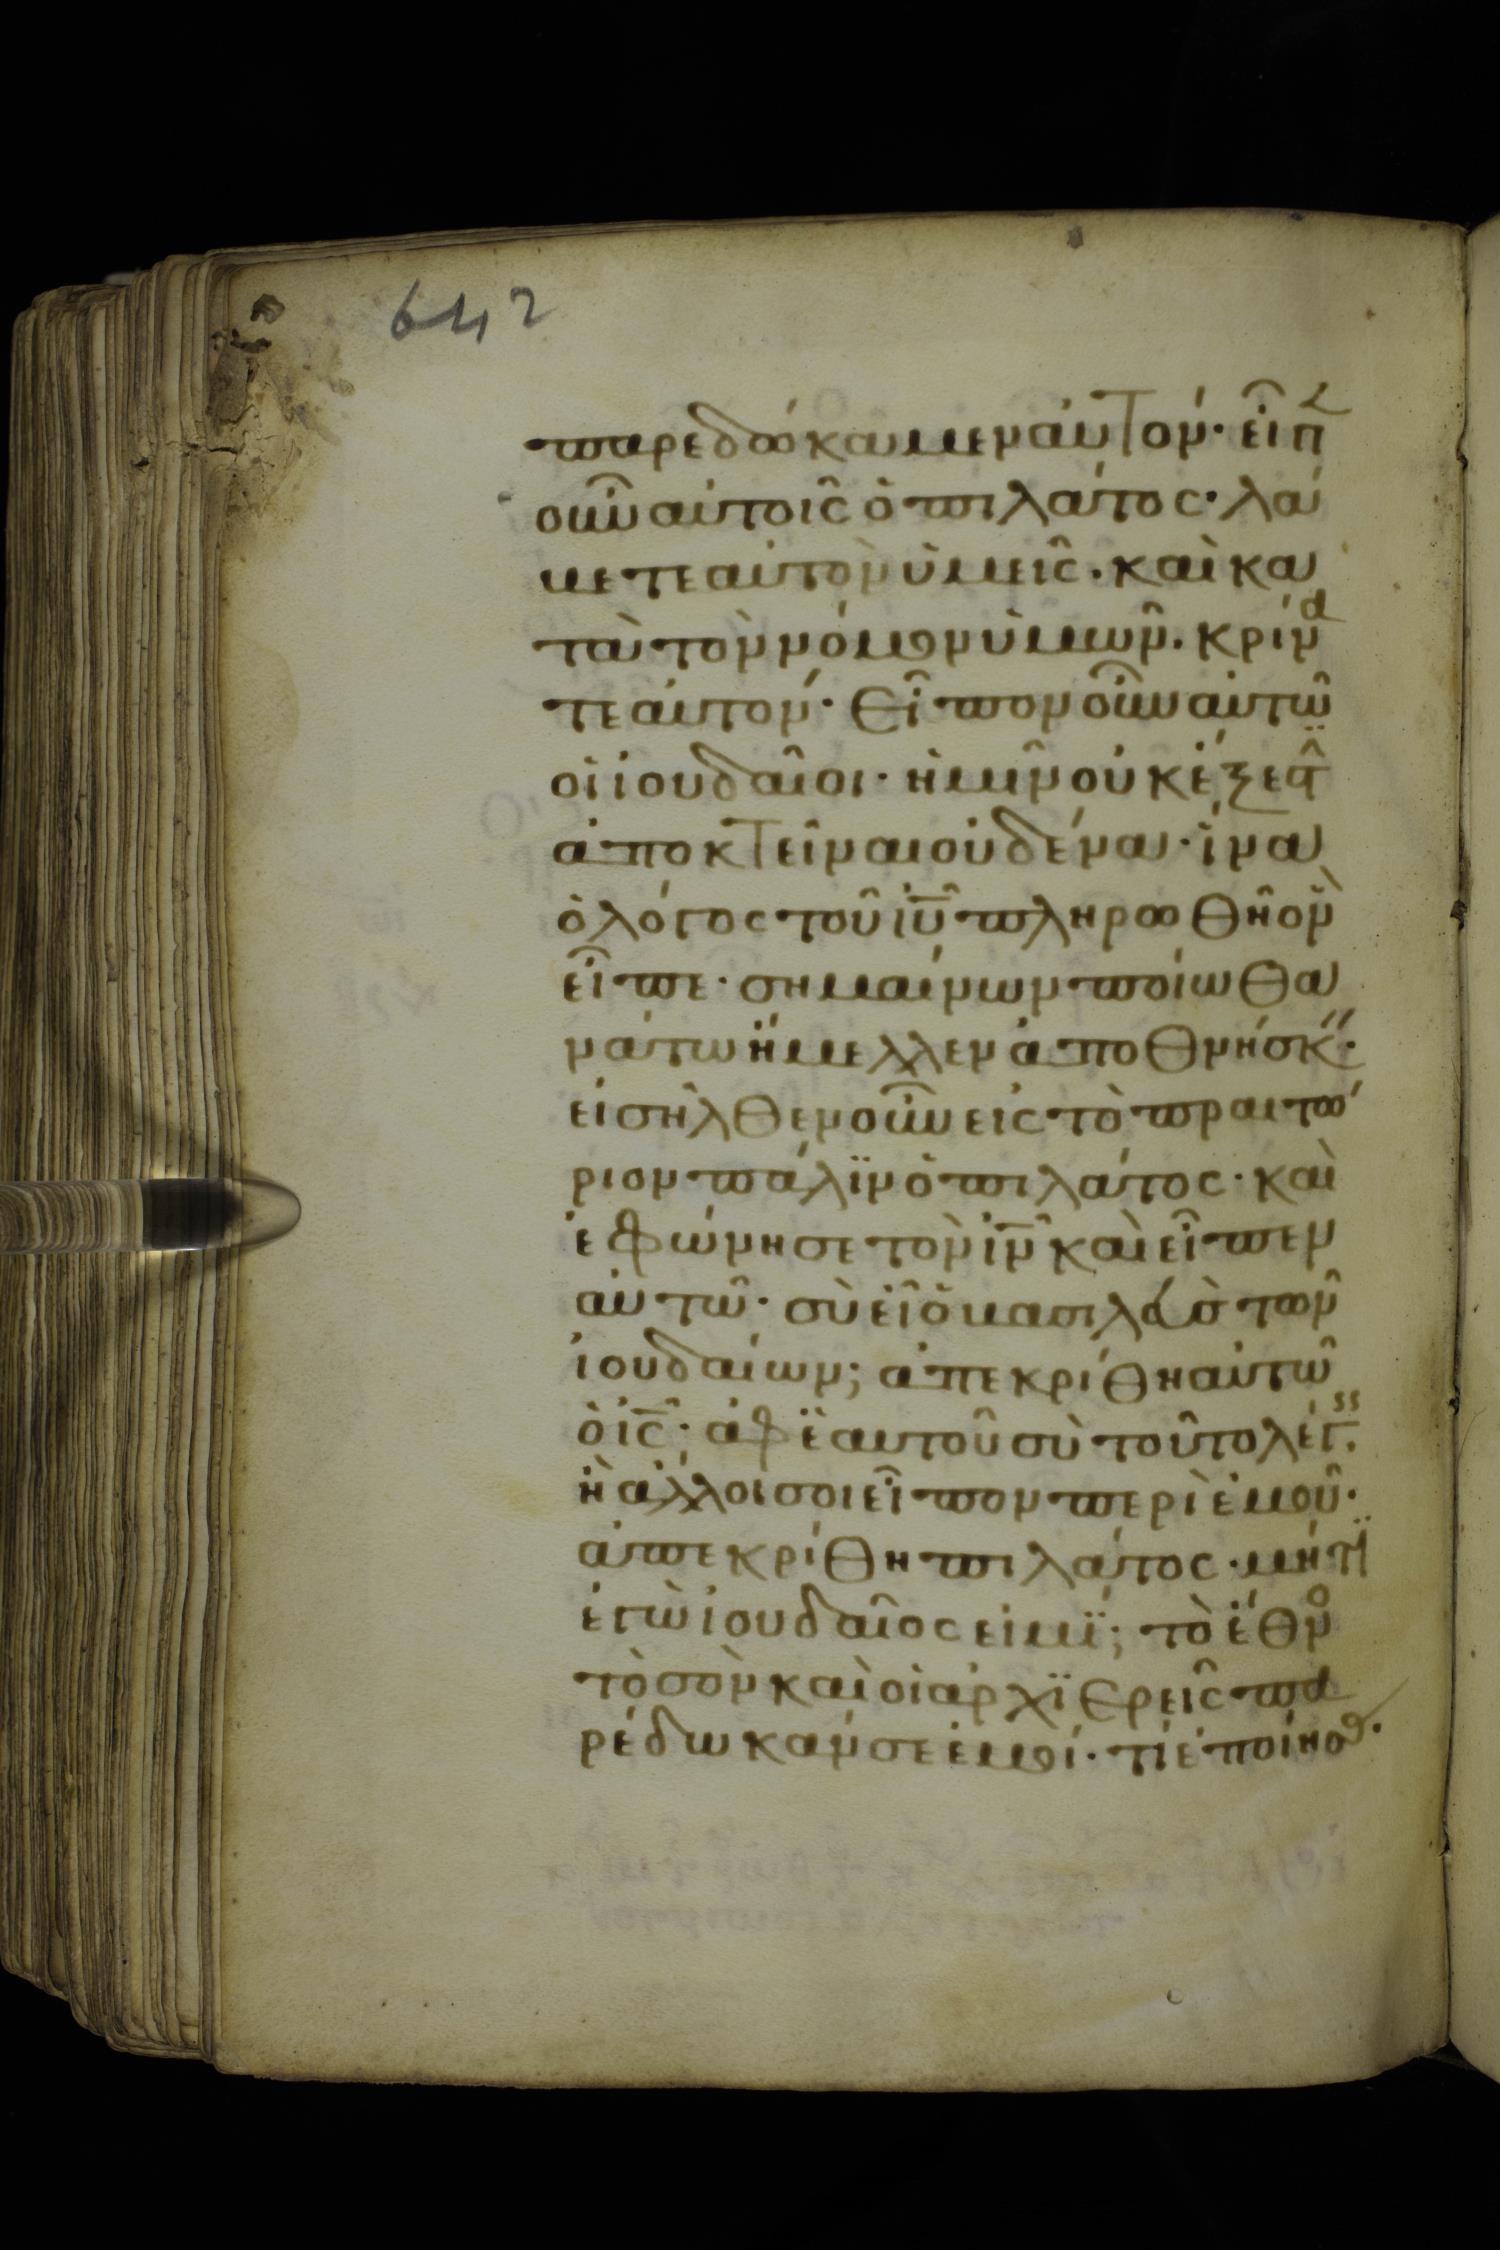 642
παρεδώκαμεν αὐτόν· εἶπ
οὖν αὐτοῖς ὁ πιλάτος· λά
βετε αὐτὸν ὑμεῖς· καὶ κα
τὰ τὸν νόμον ὑμῶν· κρίνα
τε αὐτόν· Εἶπον οὖν αὐτῶ
οἱ ἰουδαῖοι· ἡμῖν οὐκ ἔξεστ
ἀποκτεῖναι οὐδένα· ἵνα
ὁ λόγος τοῦ ἰῦ πληρωθῆ ὃν
εἶπε· σημαίνων ποίω θα
νάτω ἤμελλεν ἀποθνήσκ·
εἰσῆλθεν οὖν εἰς τὸ πραιτώ
ριον πάλϊν ὁ πιλάτος· καὶ
ἐφώνησε τὸν ἰν καὶ εἶπεν
αὐτῶ· σὺ εἶ ὁ βασιλεὺσ τῶν
ἰουδαίων; ἀπεκρίθη αὐτῶ
ὁ ἰς· ἀφ ἑαυτοῦ σὺ τοῦτο λέγ.
ἢ ἄλλοι σοι εἶπον περὶ ἐμοῦ·
ἀπεκρίθη πιλάτος· μήτϊ
ἐγὼ ἰουδαῖος εἰμϊ; τὸ ἔθνο
τὸ σὸν καὶ οἱ ἀρχϊερεῖς πα
ρέδωκάν σε ἐμοί· τί ἐποίησ·